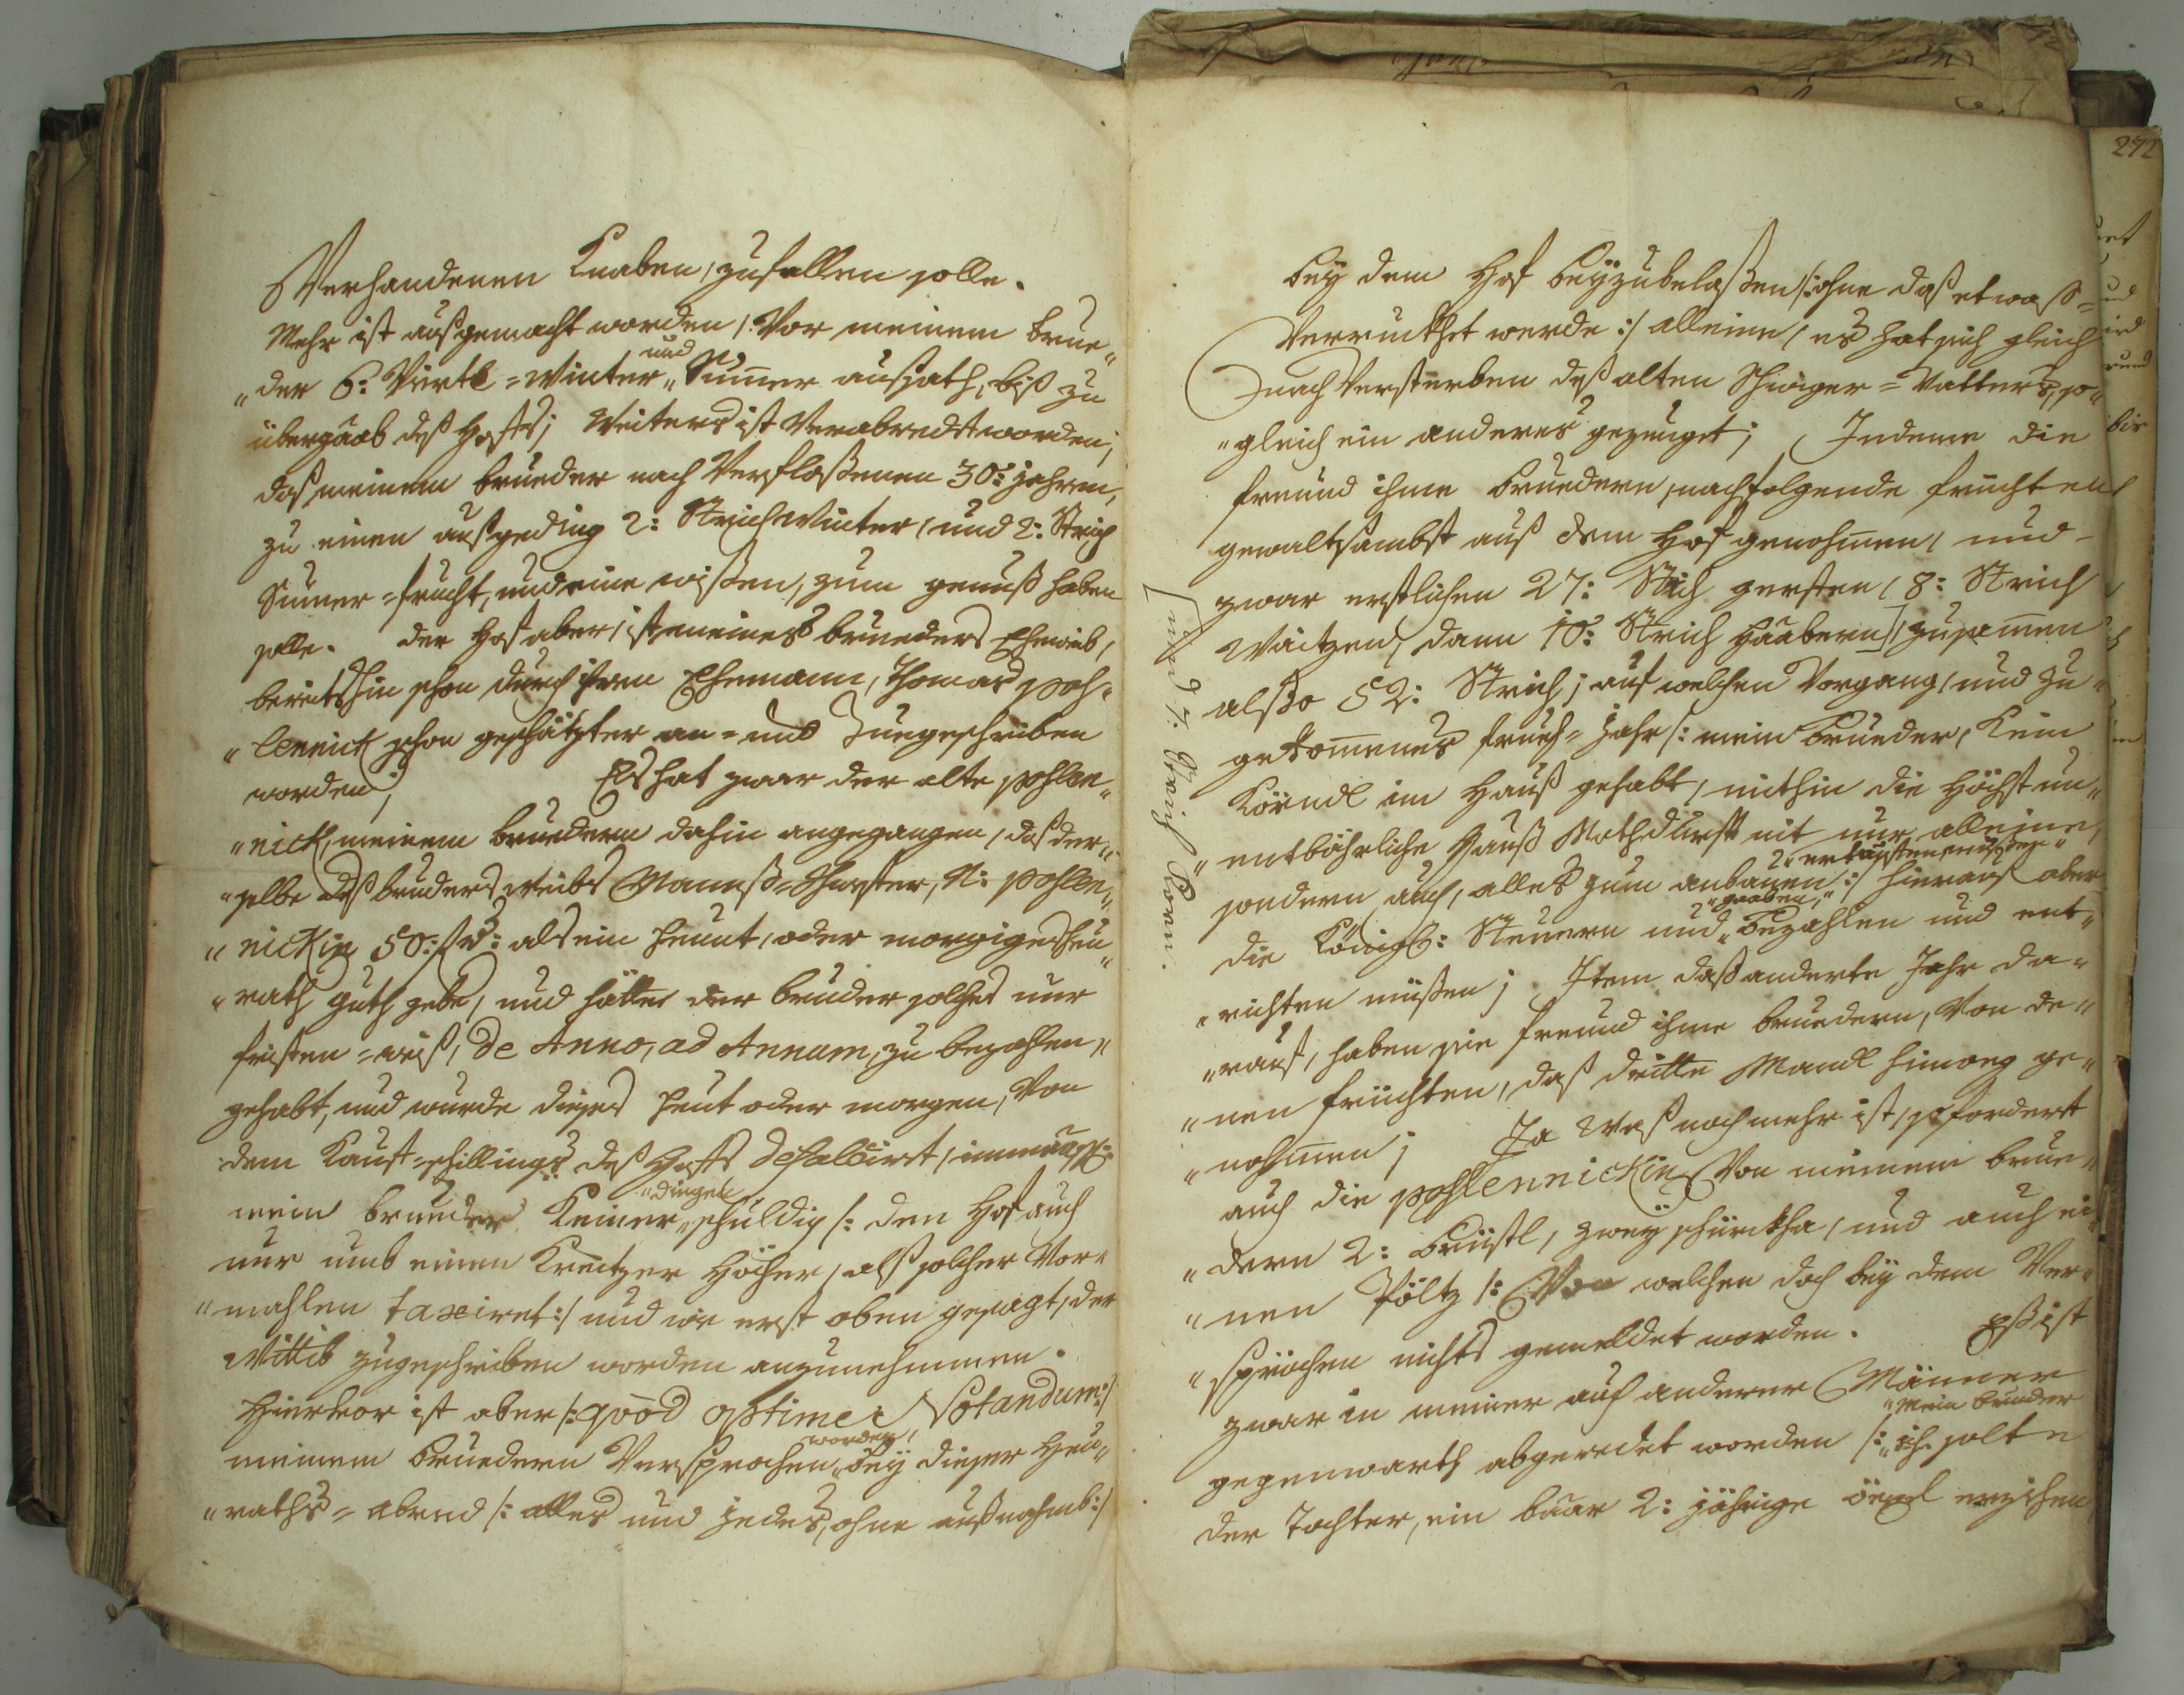 Verhandenen Knaben, zufallen solle.
Mehr ist außgemacht worden, Vor meinem brue„
„der 6: Viertl=Winter „und Sum̄er außsath, biß zu
übergaab deß Hoffs; Weiters ist Verabredt worden,
daß meinem brueder nach Verfloßenen 30: jahren,
zu einen außgeding 2: Strich Winter, und 2: Strich
Sum̄er=frucht, und eine wißen, zum genuß haben
solle. Der Hof aber, ist meines brueders Eheweib,
bereitshin schon durch ihren Ehemann, Thomas poh„
„lennick schon geschätzter an= und Zuegeschriben
worden; Es hat zwar der alte pohlen„
„nick, meinem brueder dahin angegangen, daß der„
„selbe deß bruders weibs Manns=Schwester, N: pohlen„
„nickin 50: fl: als ein heunt, oder morgiges heu„
„rath guth gebe, und hätte der bruder solches nur
fristen=weiß, de Anno, ad Annum, zu bezahlen
gehabt, und wurde dieses heut oder morgen, Von
dem Kauf=schillings deß Hoffs defalcirt,
mein brueder Keiner„dingß schuldig /: den Hof auch
nur umb einen Kreitzer Höcher, alß solcher Vor„
„mahlen taxiret :/ und wie erst oben gesagt, der
Wittib zugeschriben worden anzunehmen.
Hiervor ist aber /: quod optime Notandum :/
meinem bruedern Versprochen „worden, bey dieser Heu„
„raths=abred /: alles und jedes, ohne außnahmb :/
272
bey dem Hof beyzubelaßen /: ohne daß etwaß
Verruckhet werde :/ alleine, es hat sich gleich
nach Versterben deß alten Schwiger=Vatters, so„
„gleich ein anderes gezeuget; Indeme die
freund ihme bruedern, nachfolgende fruchten
gewaltsambst auß dem Hof genohmen, und
zwar erstlichen 27: Strich gersten, 8: Strich
Waitzen, dann 10: Strich Haabern, zusam̄en
alßo 52: Strich; auf welchen Vorgang, und zu„
gekom̄enes frueh=jahr /: mein brueder, Kein
Körndl im Hauß gehabt, mithin die Höchst un„
„entbährliche Hauß Nothdurft nit nur alleine,
sondern auch, alles zum anbauen „erkaufen müßen :/ hierauf aber
die Königl: Steuern und „gaaben, bezahlen und ent„
„richten müßen; Item daß anderte Jahr da„
„rauf, haben sie freund ihme bruedern, Von de„
„nen früchten, daß dritte Mandl hinweg ge„
„nohmen; Ja Waß noch mehr ist, so fordert
auch die pohlennickin Von meinem brue„
„dern 2: Küstl, zwey schürckha, und auch ei„
„nen Pöltz /: Von welchen doch bey dem Ver„
„sprächen nichts gemeldet worden. Eß ist
zwar in meiner auch anderer Männer
gegenwarth abgeredet worden /: „mein bruder ich solte
der Tochter, ein baar 2: jährige öxl erzihen